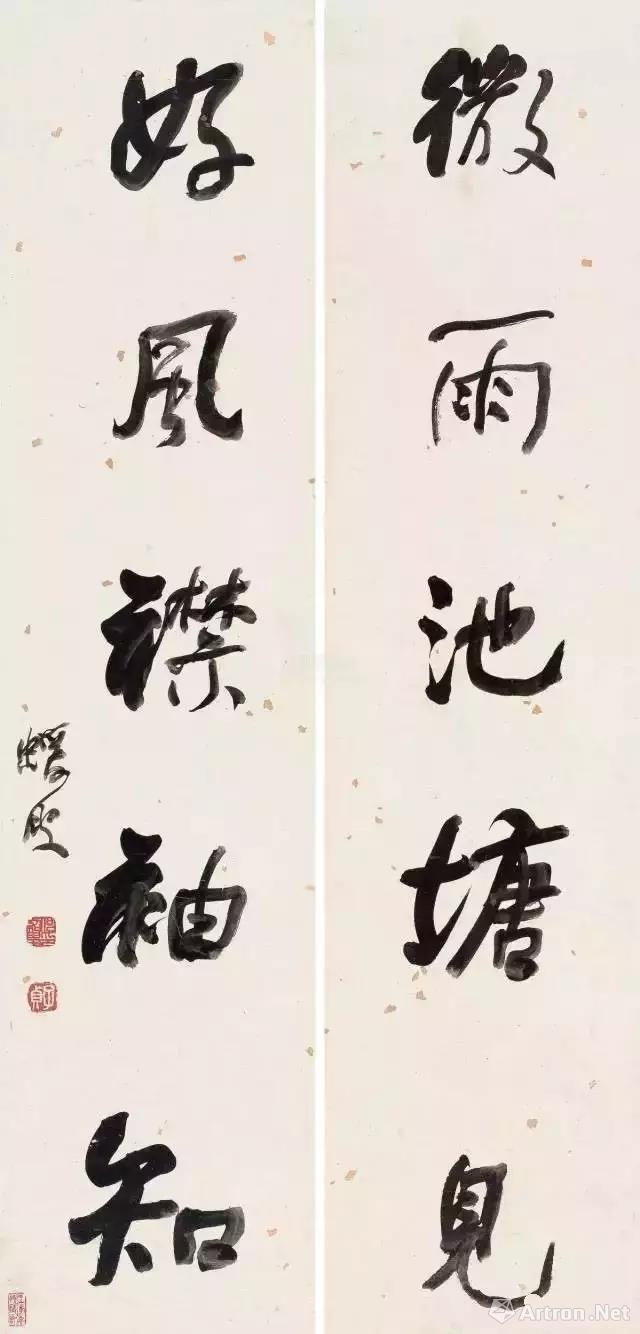 微雨池塘見
好風襟袖知
蝯叟
子貞
Artron.Net